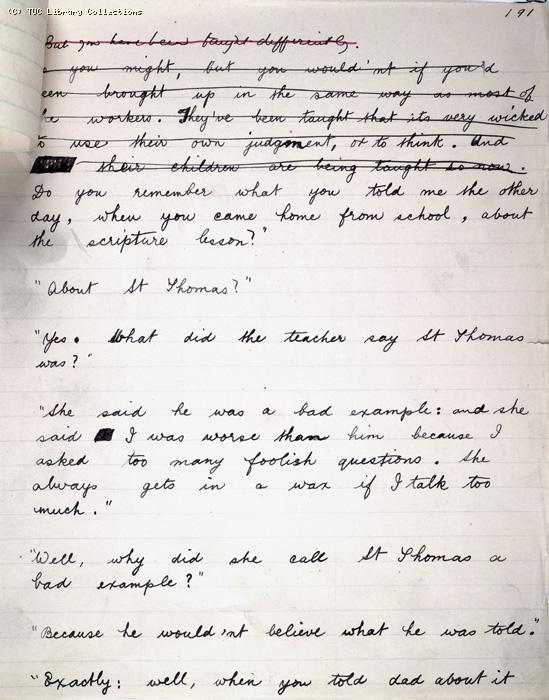 (C) TUC Library Collections
191
But you have been taught differently.
you might, but you would'nt if you'd
een brought up in the same way as most of
he workers. They've been taught that its very wicked
to use their own judgment, or to think. And
their children are being taught so now.
Do you remember what you told me the other
day, when you came home from school, about
the scripture lesson?"
"About St Thomas?"
"Yes. What did the teacher say St Thomas
was?"
"She said he was a bad example: and she
said I was worse than him because I
asked too many foolish questions. She
always gets in a wax if I talk too
much."
"Well, why did she call St Thomas a
bad example?"
"Because he would'nt believe what he was told."
"Exactly: well, when you told dad about it